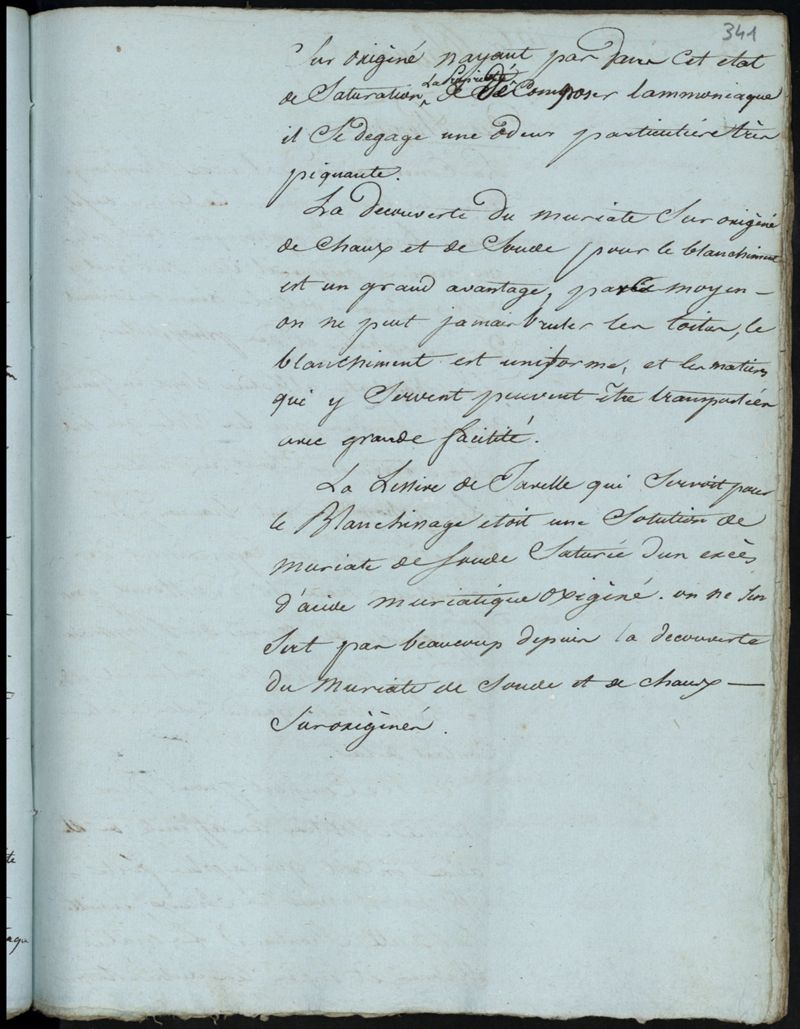 341
Sur oxigèné nayant pas dans cet etat
de Saturation la propriété de deComposer lammoniaque
il Se degage une odeur particulière très
piquante.
La decouverte du muriate Sur oxigèné
de chaux et de Soude pour le blanchiment
est un grand avantage, par ce moyen –
on ne peut jamais bruler les toiles, le
blanchiment est uniforme, et les matieres
qui y Servent peuvent être transportées
avec grande facilité.
La Lessive de Javelle qui Servoit pour
le Blanchissage etoit une Solution de
muriate de Soude Saturée dun excès
d'acide muriatique oxigèné. on ne S'en
Sert pas beaucoup depuis la decouverte
du Muriate de Soude et de chaux —
Suroxigènés.